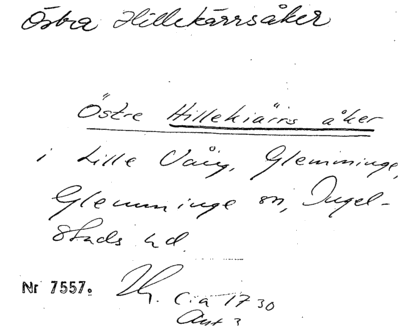 Östra Hillekärrsåker
Östre Hillekiärrs åker
i Lille Vång, Glemminge,
Glemminge sn, Ingel-
stads hd.
Nr 7557. c:a 1730